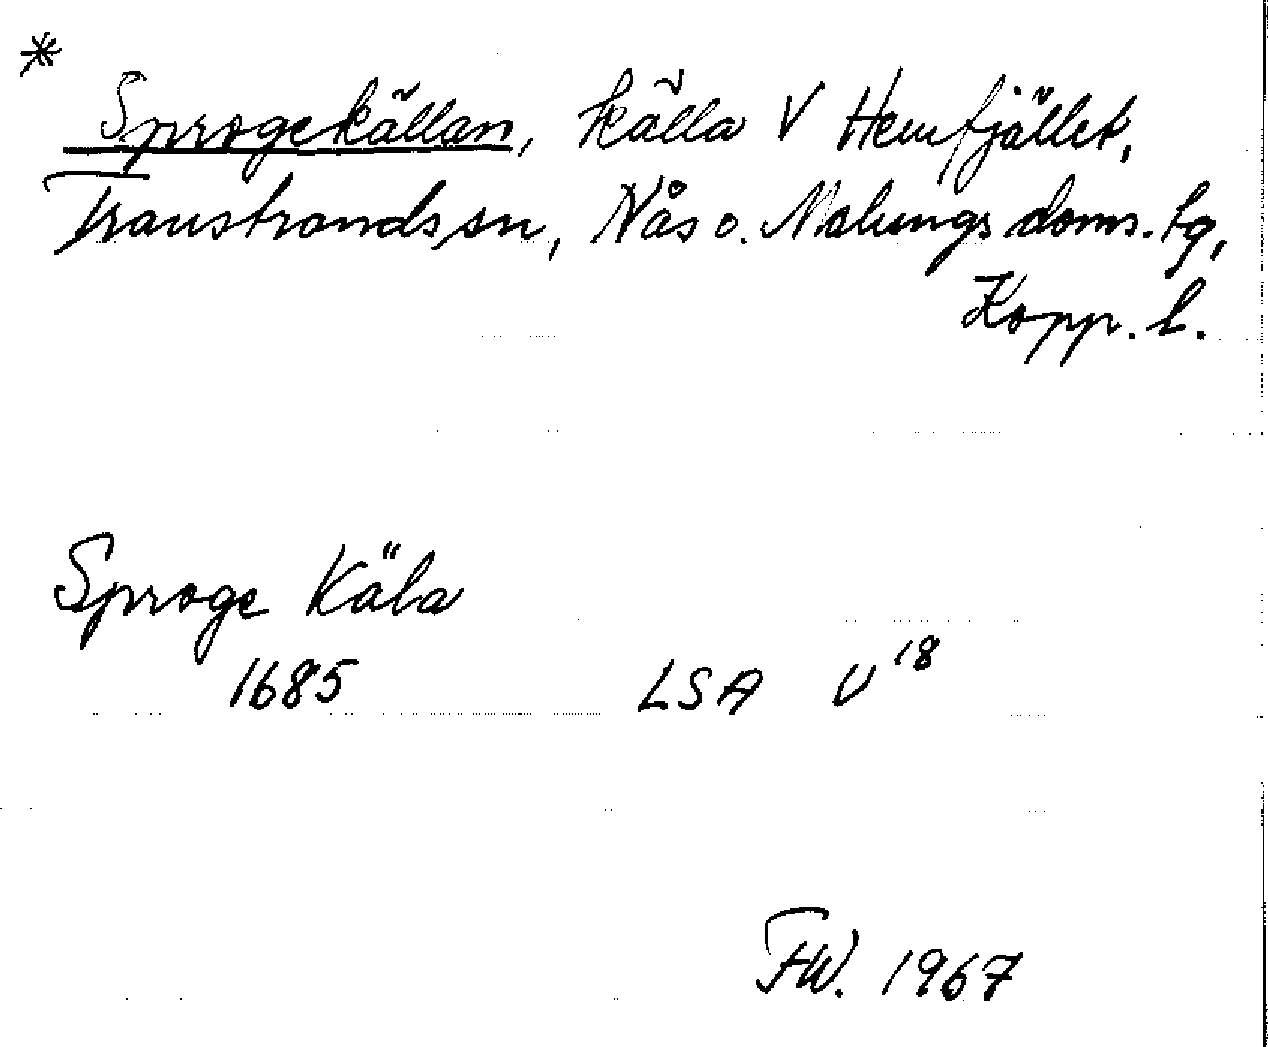 *
Sprogekällan, källa V Hemfjället,
Transtrands sn, Nås o. Malungs doms. tg,
Kopp. l.
Sproge Käla
1685 LSA U¹⁸
FW. 1967